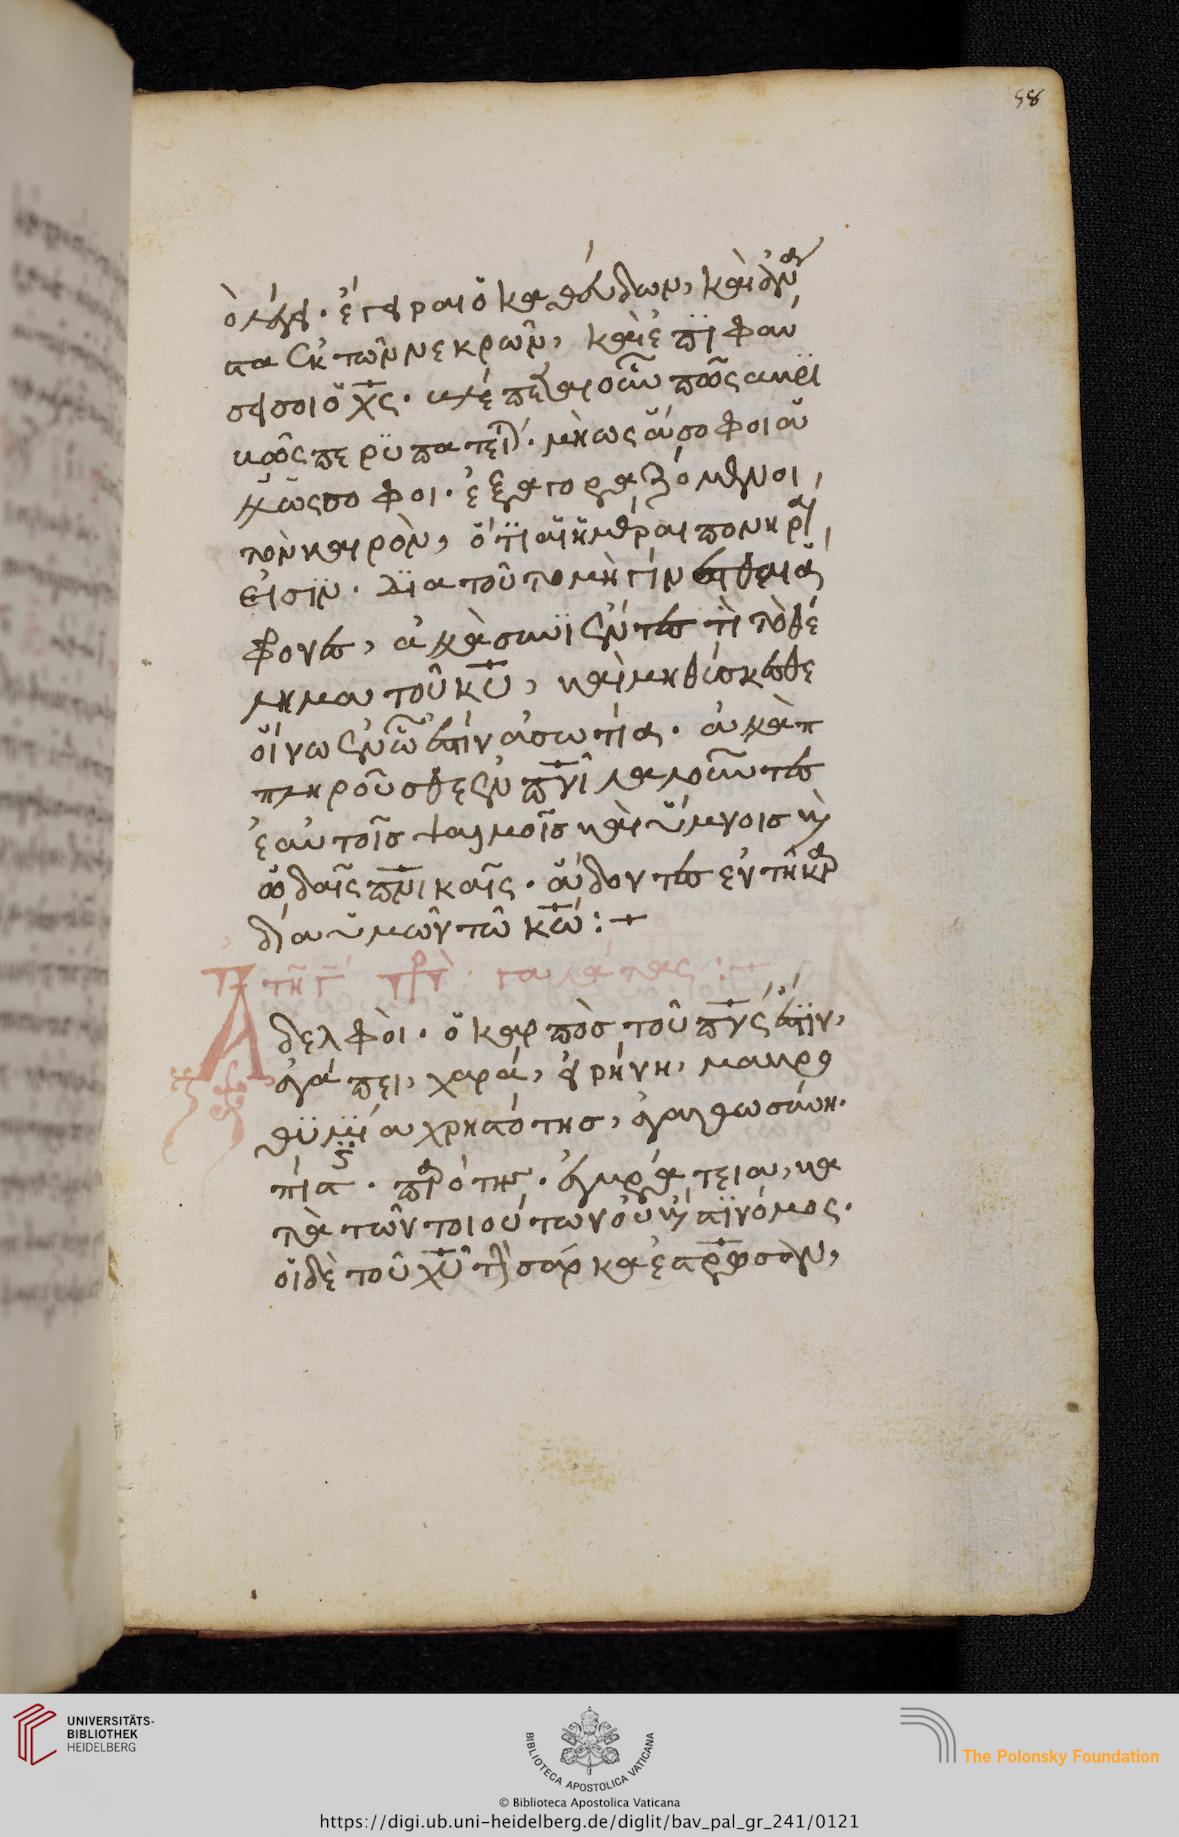 58
ὁ λέγει. ἔγειραι ὁ καθεύδων, καὶ ἀνά
στα ἐκ τῶν νεκρῶν, καὶ ἐπϊφαύ
σει σοι ὁ χς. βλέπεται οὖν πῶς ἀκρϊ
βῶς περϋπατεῖτε. μὴ ὡς ἄσοφοι ἀλ
λ' ὡς σοφοι. ἐξαγοραζόμενοι,
τὸν καιρὸν, ὅτϊ αἱ ἡμέραι πονηραί
εἰσϊν. δϊα τοῦτο μὴ γίνεσθαι ἄ
φονες, ἀλλὰ συνϊέντες τὶ τὸ θέ
λημα τοῦ κυ, καὶ μὴ μεθύσκεσθε
οἴνω ἐν ᾧ ἐστίν ἀσωτία. ἀλλὰ π
πληροῦσθε ἐν πνὶ λαλοῦντες
ἑαυτοῖς ψαλμοῖς καὶ ὕμνοις κὶ
ᾠδαῖς πνικαῖς. ἄδοντες ἐν τῆ καρ
δία ὑμῶν τῶ κω:+
τῆ γαλάτας:+
Ἀδελφὸι. ὁ καρπὸσ τοῦ πνς ἐστϊν,
ἀγάπει, χαρά, εἰρήνη, μακρο
θϋμΐα χρηστότης, ἀγαθωσύνη.
πίστϊς. πραότης. ἐγκράτεια, κα
τὰ τῶν τοιούτων οὐκ ἔστϊ νόμος.
οἱ δὲ τοῦ χυ τὴν σάρκα ἐστρωσαν,
UNIVERSITÄTS-
BIBLIOTHEK
HEIDELBERG
BIBLIOTECA APOSTOLICA VATICANA
The Polonsky Foundation
© Biblioteca Apostolica Vaticana
https://digi.ub.uni-heidelberg.de/diglit/bav_pal_gr_241/0121